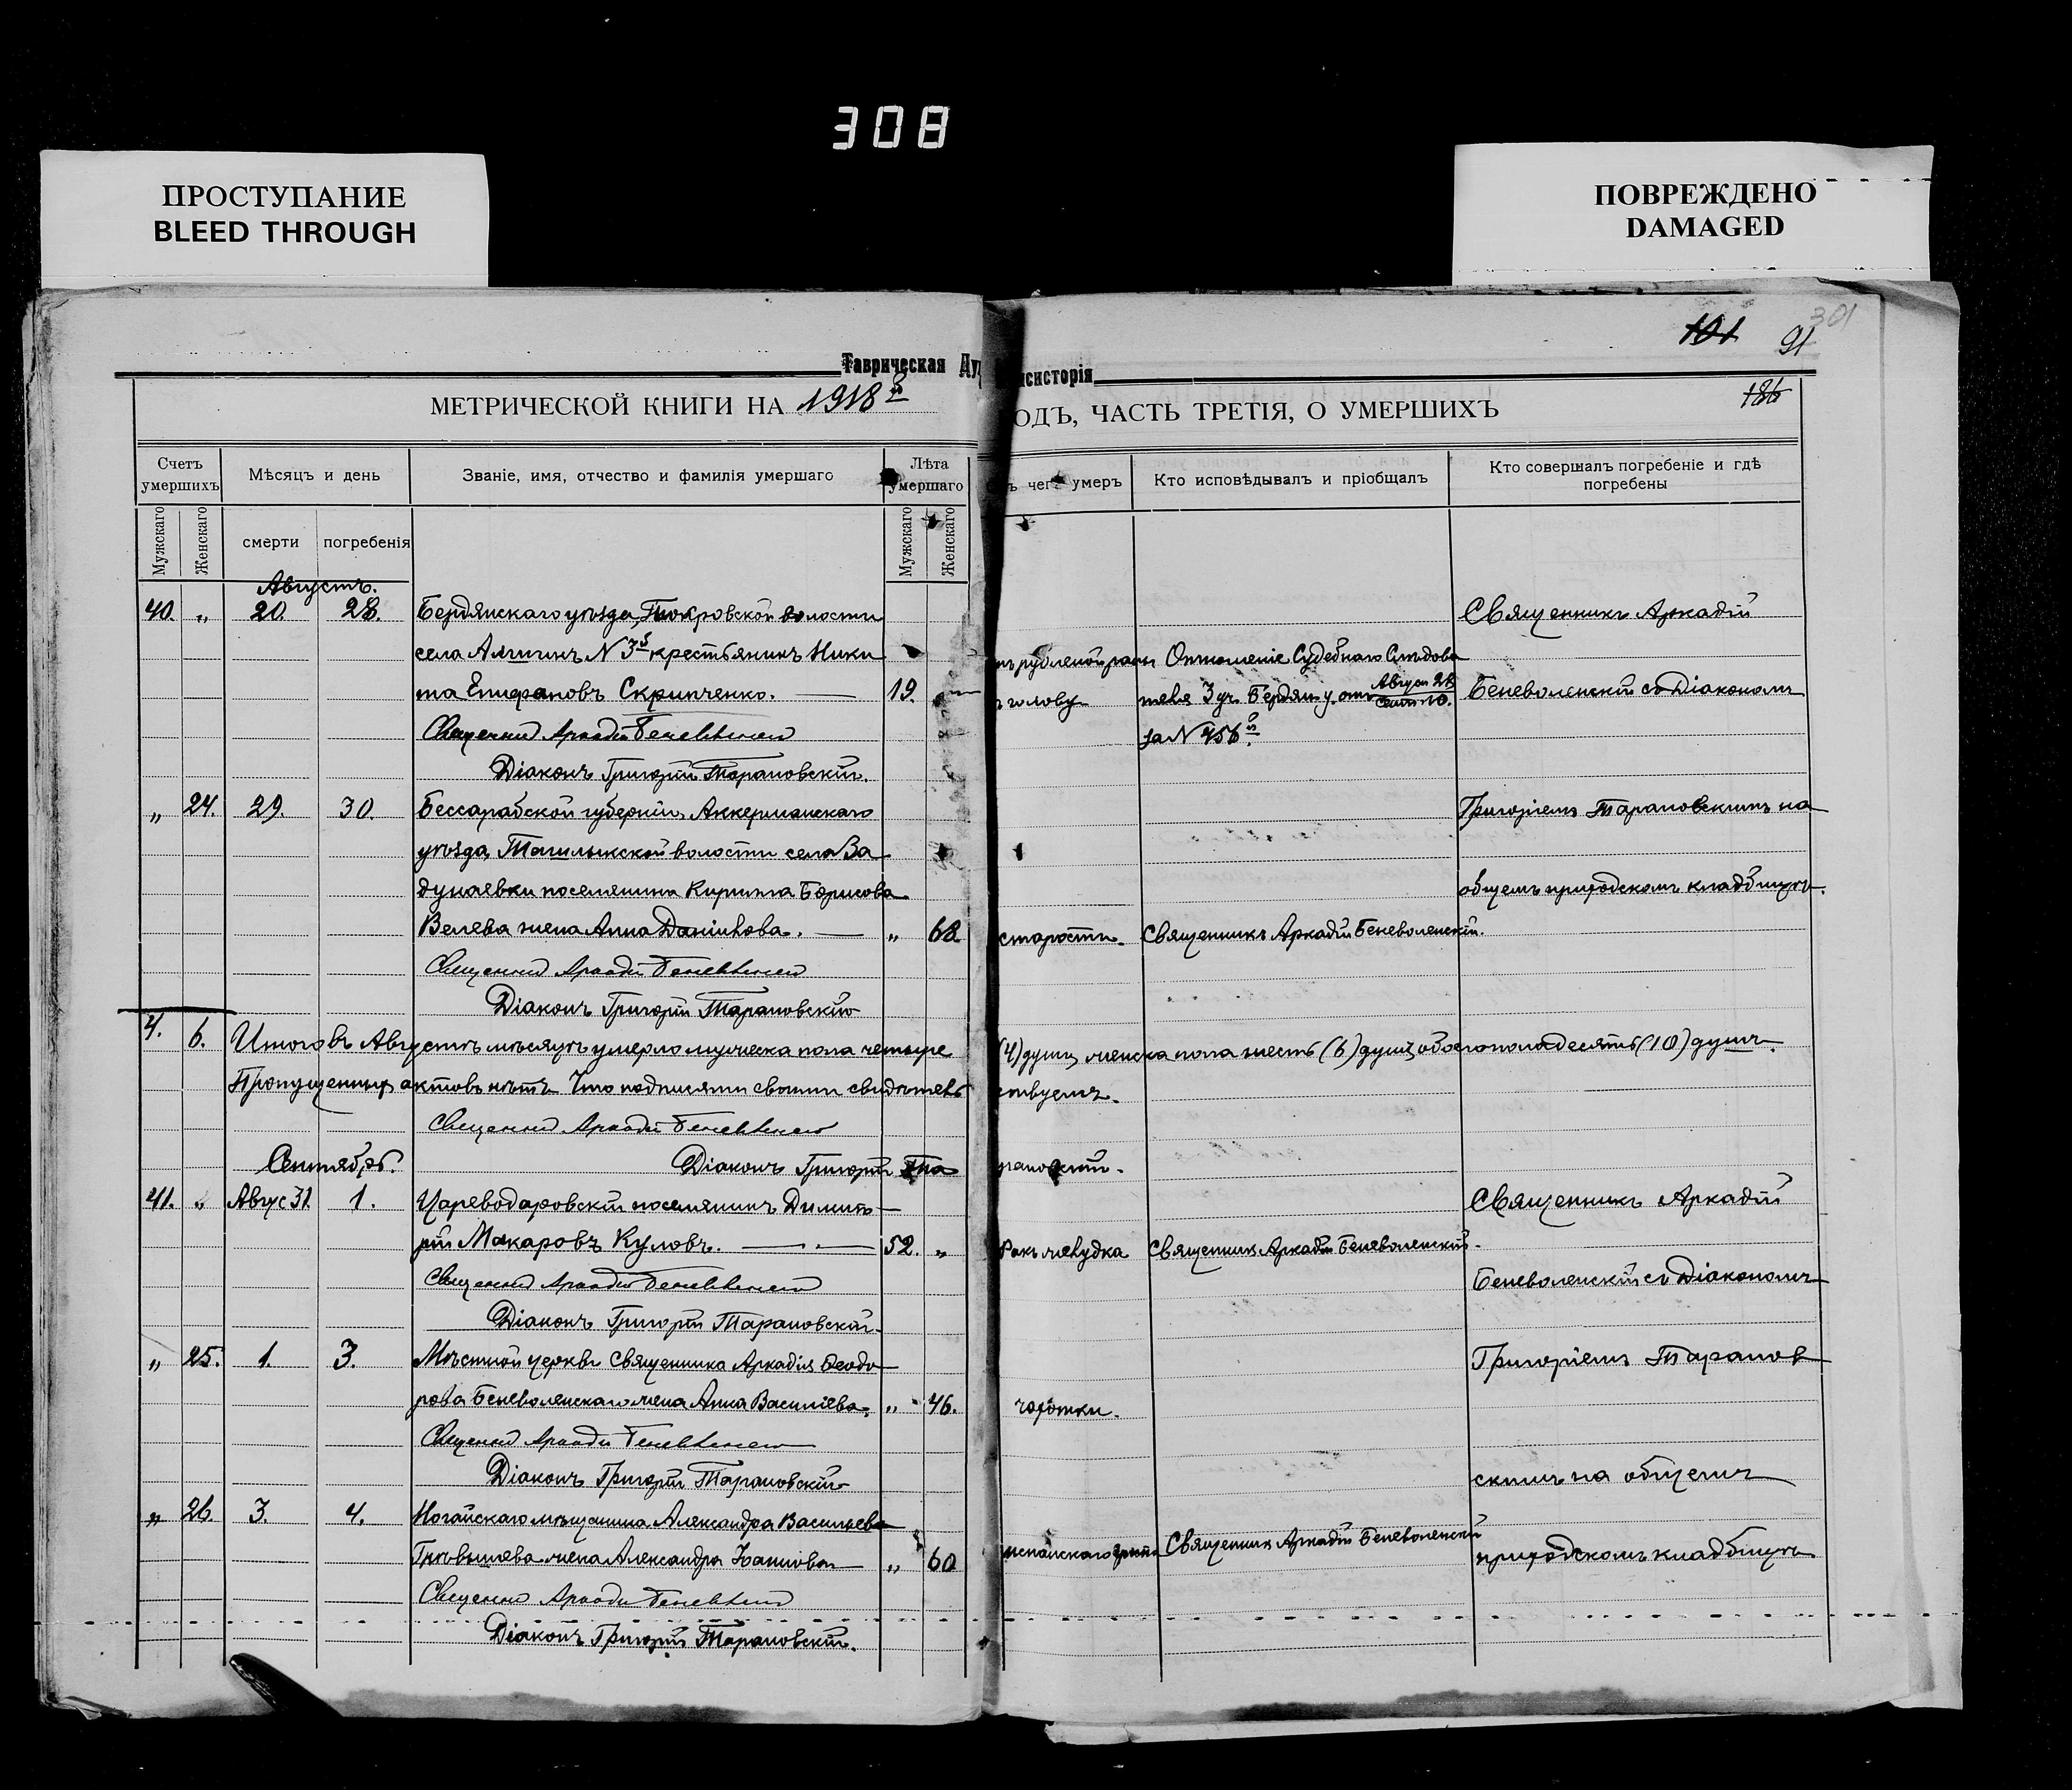 308
ПРОСТУПАНИЕ
BLEED THROUGH
ПОВРЕЖДЕНО
DAMAGED
301
101 91
Таврическая Ду
нсисторія
МЕТРИЧЕСКОЙ КНИГИ НА 1918й
ОДЪ, ЧАСТЬ ТРЕТІЯ, О УМЕРШИХЪ
186
Счетъ умершихъ
Мѣсяцъ и день
Званіе, имя, отчество и фамилія умершаго
Лѣта умершаго
ъ чег умеръ
Кто исповѣдывалъ и пріобщалъ
Кто совершалъ погребеніе и гдѣ погребены
Мужскаго
Женскаго
смерти
погребенія
Мужскаго
Женскаго
Августъ.
40. „ 20. 28. Бердянскаго уѣзда, Покровской волости
села N 3й крестьянинъ Ники
та Епифановъ Скрипченко. — 19.
Священникъ Аркадій Беневоленскій
Діаконъ Григорій Тарановскій.
рубленой раны
голову
Отношеніе Судебнаго Слѣдова
теля 3 уч. Бердян. у. отъ Август 28 Сент. 10.
за N 756й.
Священникъ Аркадій
Беневоленскій съ Діакономъ
„ 24. 29. 30. Бессарабской губерніи, Аккерманскаго
уѣзда, волости села За
дунаевки поселянина Кирилла Борисова
Велева жена Анна Данилова. — „ 68.
старости. Священникъ Аркадій Беневоленскій.
Священникъ Аркадій Беневоленскій
Діаконъ Григорій Тарановскій
Григоріемъ Тарановскимъ на
общемъ приходскомъ кладбищѣ.
4. 6. Итого въ Августѣ мѣсяцѣ умерло мужеска пола четыре (4) душъ, женска пола шесть (6) душъ, обоего пола десять (10) душъ.
Пропущенныхъ актовъ нѣтъ. Что подписями своими свидѣтельствуемъ.
Священникъ Аркадій Беневоленскій
Сентябрь. Діаконъ Григорій Тарановскій.
41. „ Авгус 31. 1. Цареводаровскій поселянинъ Димит
рій Макаровъ Куловъ. — 52. „
Ракъ желудка Священникъ Аркадій Беневоленскій.
Священникъ Аркадій Беневоленскій
Діаконъ Григорій Тарановскій.
Священникъ Аркадій
Беневоленскій съ Діакономъ
„ 25. 1. 3. Мѣстной церкви Священника Аркадія Ѳеодо
рова Беневоленскаго жена Анна Василіева. „ 46.
чахотки.
Священникъ Аркадій Беневоленскій
Діаконъ Григорій Тарановскій
Григоріемъ Таранов
скимъ на общемъ
„ 26. 3. 4. Ногайскаго мѣщанина Александра Васильева
жена Александра Іоаннова „ 60
испанскаго Священникъ Аркадій Беневоленскій
приходскомъ кладбищѣ
Священникъ Аркадій Беневоленскій
Діаконъ Григорій Тарановскій.